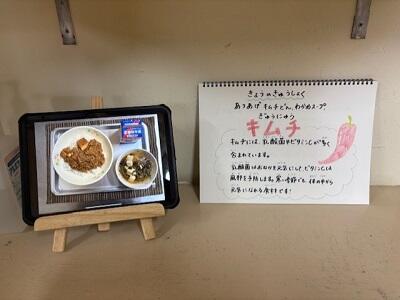 きょうのきゅうしょく
あつあげキムチどん、わかめスープ
ぎゅうにゅう
キムチ
キムチには、乳酸菌やビタミンCが多く
含まれています。
乳酸菌はおなかを元気にし、ビタミンCは
風邪を予防します。寒い季節でも、体の中から
元気になれる食材です!